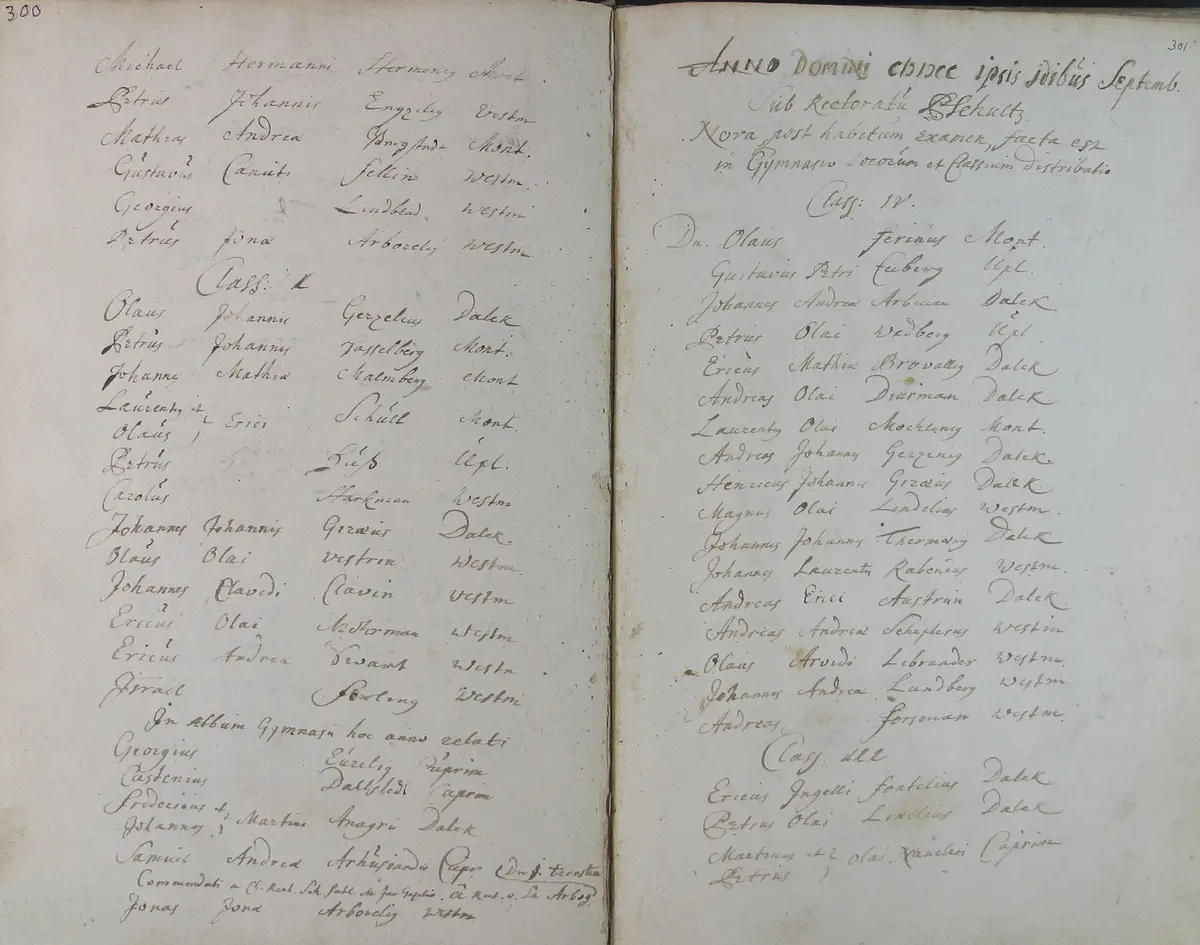 300
Michael Hermanni Hermonig Mont.
Petrus Johannis Engzelig Westm
Mathias Andreæ Mont.
Gustavus Canuti Sellin Westm.
Georgius Lindblad Westm
Petrus Jonæ Arborelig Westm
Class: I
Olaus Johannis Gezzelius Dalek
Petrus Johannis Tasselberg Mont.
Johanng Mathiæ Malmberg Mont
Laurentg et
Olaus Erici Schult Mont.
Petrus Upl.
Carolus Harkman Westm
Johannes Johannis Gezæus Dalek.
Olaus Olai Vestrin Westm.
Johannes Clavidi Clavin Westm
Ericus Olai Westm
Ericus Andreæ Swart Westm
Israel Westm
In Album Gymnasii hoc anno relati
Georgius Eurelig Cuprim
Castenius Dahlstedt Cuprim
Fridericus et
Johannes Martini Anagrii Dalek
Samuel Andreæ Arhusiandr Cupr
Commendati a
Jonas Jonæ Arborelig Westm
301
ANNO DOMINI CIƆIƆCC ipsis idibus Septemb.
Sub Rectoratu PSchultz
Nova post habitum Examen, facta est
in Gymnasio Locorum et Classium distributio
Class: IV.
Dn. Olaus Ferinus Mont.
Gustavus Petri Enberg Upl.
Johannes Andreæ Arbman Dalek
Petrus Olai Wadberg Upl
Ericus Mathiæ Browallig Dalek
Andreas Olai Diurman Dalek
Laurentg Olai Mont.
Andreas Johanng Gezzenig Dalek.
Henricus Johannis Gezæus Dalek
Magnus Olai Lindelius Westm.
Johannes Johannis Thermænig Dalek
Johannes Laurentii Rabenius Westm.
Andreas Erici Austrin Dalek
Andreas Andreæ Scheplerus Westm
Olaus Arvidi Lebrander Westm.
Johannes Andreæ Lundberg Westm
Andreas Forsman Westm.
Class. III
Ericus Ingelli Fontelius Dalek
Petrus Olai Lindlius Dalek
Martinus et Olai Cuprim
Petrus